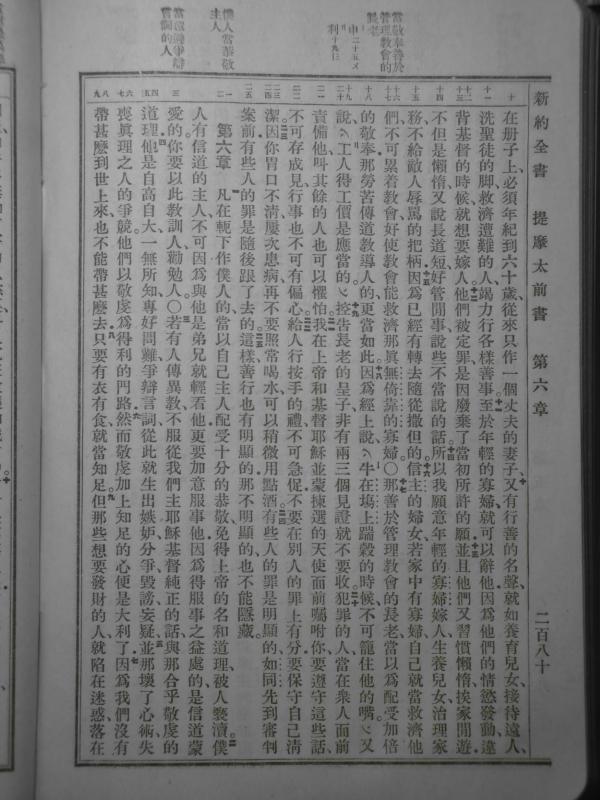 新約全書 提摩太前書 第六章 二百八十
當敬奉善於
管理教會的
長老
申二十五〤
利十九〨
僕人當恭敬
主人
當遠離爭辯
嘗聞的人
在册子上必須年紀到六十歲從來只作一個丈夫的妻子又有行善的名聲就如養育兒女接待遠人
洗聖徒的脚救濟遭難的人竭力行各樣善事至於年輕的寡婦就可以辭他因爲他們的情慾發動違
背基督的時候就想要嫁人他們被定罪是因廢棄了當初所許的願並且他們又習慣懶惰挨家閒遊
不但是懶惰又說長道短好管閒事說些不當說的話所以我願意年輕的寡婦嫁人生養兒女治理家
務不給敵人辱罵的把柄因爲已經有轉去隨從撒但的信主的婦女若家中有寡婦自己就當救濟他
們不可累着教會好使教會能救濟那眞無倚靠的寡婦○那善於管理教會的長老當以爲配受加倍
的敬奉那勞苦傳道教導人的更當如此因爲經上說牛在塲上踹穀的時候不可籠住他的嘴又
說工人得工價是應當的控告長老的呈子非有兩三個見證就不要收犯罪的人當在衆人面前
責備他叫其餘的人也可以懼怕我在上帝和基督耶穌並蒙揀選的天使面前囑咐你要遵守這些話
不可存成見行事也不可有偏心給人行按手的禮不可急促不要在別人的罪上有分要保守自己清
潔因你胃口不清屢次患病再不要照常喝水可以稍微用點酒有些人的罪是明顯的如同先到審判
案前有些人的罪是隨後跟了去的這樣善行也有明顯的那不明顯的也不能隱藏
第六章 凡在軛下作僕人的當以自己主人配受十分的恭敬免得上帝的名和道理被人褻瀆僕
人有信道的主人不可因爲與他是弟兄就輕看他更要加意服事他因爲得服事之益處的是信道蒙
愛的你要以此教訓人勸勉人○若有人傳異教不服從我們主耶穌基督純正的話與那合乎敬虔的
道理他是自高自大一無所知專好問難爭辯言詞從此就生出嫉妒分爭毀謗妄疑並那壞了心術失
喪眞理之人的爭競他們以敬虔爲得利的門路然而敬虔加上知足的心便是大利了因爲我們沒有
帶甚麼到世上來也不能帶甚麼去只要有衣有食就當知足但那些想要發財的人就陷在迷惑落在